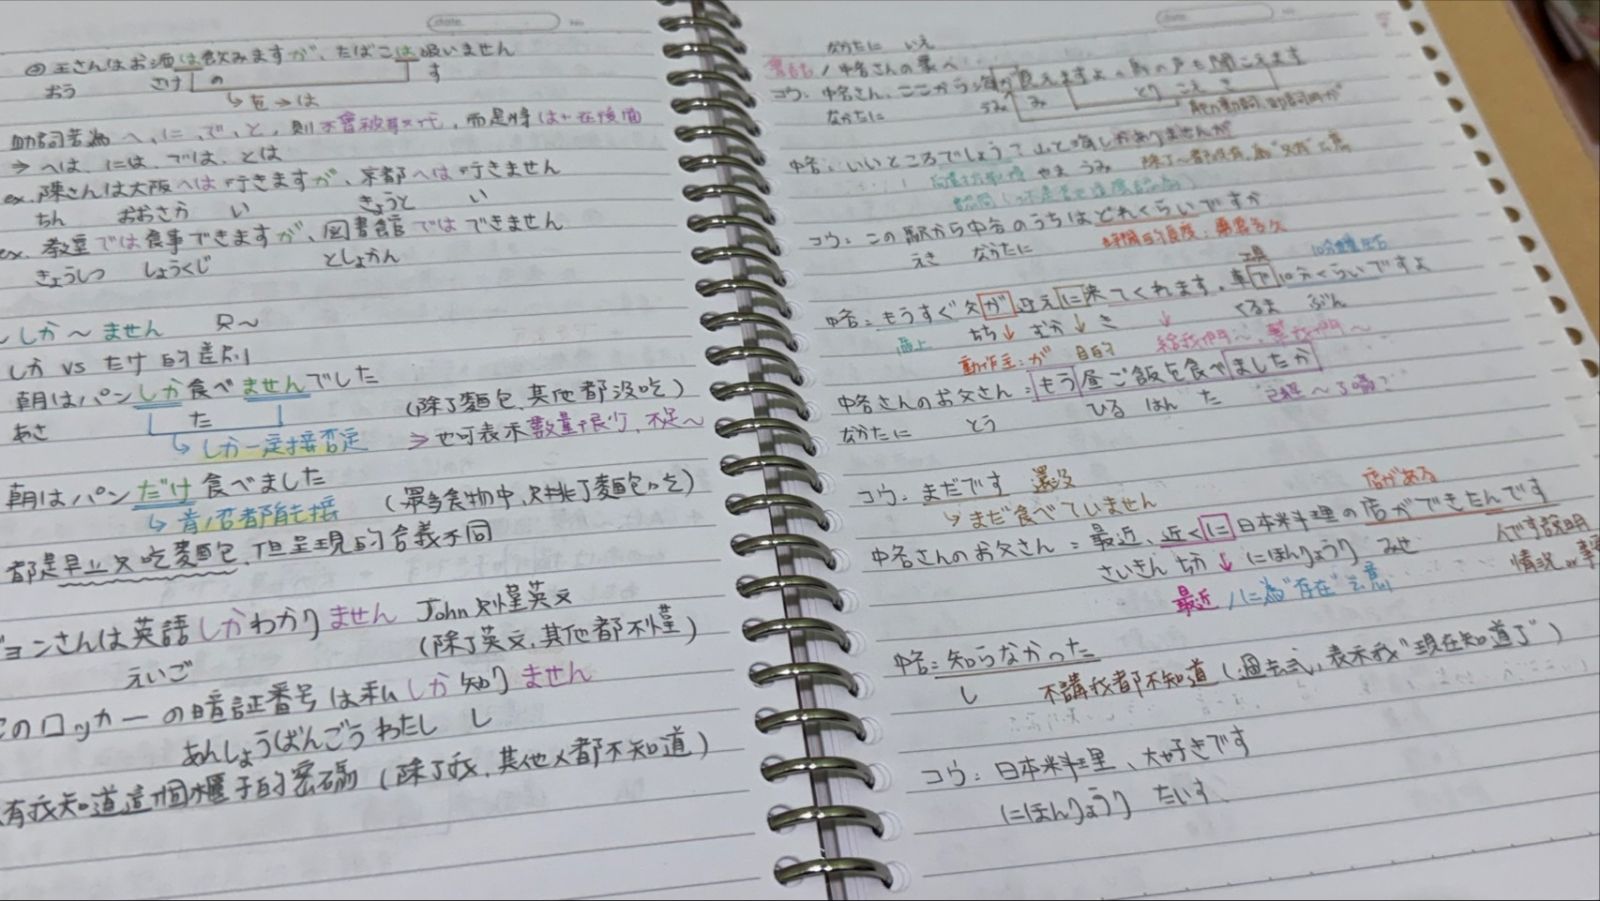 date
No
④ 王さんはお酒は飲みますが、たばこは吸いません
おう さけ の す
↳ を → は
助詞若為 へ、に、で、と, 則不會被取代, 而是將は+在後面
⇒ へは、には、では、とは
ex. 陳さんは大阪へは行きますが、京都へは行きません
ちん おおさか い きょうと い
ex. 教室では食事できますが、図書館ではできません
きょうしつ しょくじ としょかん
～しか～ません 只～
しか vs だけ 的差別
朝はパンしか食べませんでした
あさ た (除了麵包, 其他都沒吃)
↳ しか一定接否定 ⇒ 也可表示數量很少, 不足～
朝はパンだけ食べました
↳ 肯/否都能接 (眾多食物中, 只挑了麵包吃)
都是早上只吃麵包, 但呈現的含義不同
ジョンさんは英語しかわかりません John 只懂英文
えいご (除了英文, 其他都不懂)
このロッカーの暗証番号は私しか知りません
あんしょうばんごう わたし し
有我知道這個櫃子的密碼 (除了我, 其他人都不知道)
date
No
なかたに いえ
/ 中谷さんの家へ
コウ: 中谷さん、ここから海が見えますよ。鳥の声も聞こえます
なかたに うみ み とり こえ き
中谷: いいところでしょう?
やま うみ
コウ: この駅から中谷のうちはどれくらいですか
えき なかたに 時間的長度: 需要多久
工具 10分鐘左右
中谷: もうすぐ父が迎えに来てくれます。車で10分くらいですよ
馬上 ちち↓ むか↓ き ↓ くるま ぷん
動作主: が 目的 給我們～, 幫我們～
中谷さんのお父さん: もう昼ご飯を食べましたか
なかたに とう ひる はん た "已經～了嗎?"
コウ: まだです 還沒
↳ まだ食べていません
店がある
中谷さんのお父さん: 最近、近くに日本料理の店ができたんです
さいきん ちか↓ にほんりょうり みせ んです説明
最近 /に為"存在"之意 情況 or 事
中谷: 知らなかった
し 不講我都不知道 (過去式, 表示我"現在知道了")
コウ: 日本料理、大好きです
にほんりょうり だいす